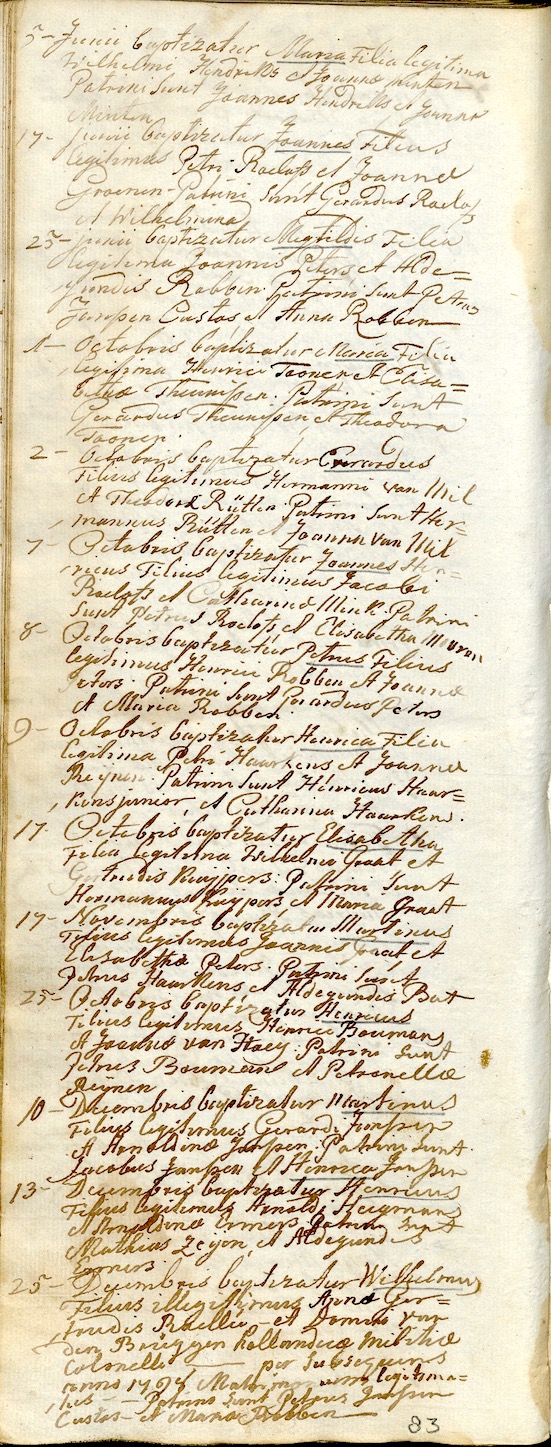 5 - Junii baptizatur Maria Filia legitima
Wilhelmi Hendrikx et Joannæ Minten
Patrini sunt Joannes Hendrikx et Joanna
Minten
17 - junii baptizatur Joannes Filius
legitimus Petri Roelofs et Joannæ
Groenen - Patrini sunt Gerardus Roelofs
et Wilhelmina
25 - junii baptizatur Megtildis Filia
legitima Joannis Peters et Alde=
gundis Robben Patrini sunt Petrus
Janssen Custos et Anna Robben
1 - Octobris baptizatur Maria Filia
legitima Henrici Toonen et Elisa=
bethæ Theunissen. Patrini sunt
Gerardus Theunissen et Theodora
Toonen.
2 - Octobris baptizatur Gerardus
Filius legitimus Hermanni van Mil
et Theodoræ Rütten. Patrini sunt Her-
mannus Rütten et Joanna van Mil
7 - Octobris baptizatur Joannes Hen-
ricus Filius legitimus Jacobi
Roelofs et Catharinæ Patrini
sunt Petrus Roelofs et Elisabetha
8 - Octobris baptizatur Petrus Filius
legitimus Henrici Robben et Joannæ
Peters. Patrini sunt Gerardus Peters
et Maria Robben
9 - Octobris baptizatur Henrica Filia
legitima Petri Haerkens et Joannæ
Reynen. Patrini sunt Henricus Haar=
kens junior, et Catharina Haarkens.
17 Octobris baptizatur Elisabetha
Filia legitima Wilhelmi Graat et
Gertrudis Kuypers. Patrini sunt
Hermannus Kuypers et Maria Graat
17 - Novembris baptizatur Martinus
Filius legitimus Joannis Graat et
Elisabethæ Peters. Patrini sunt
Petrus Haarkens et Aldegundis
25 - Octobris baptizatur Henricus
Filius legitimus Henrici Boumans
et Joannæ van Haey. Patrini sunt
Petrus Bouman et Petronella
Reijnen
10 - Decembris baptizatur Martinus
Filius legitimus Gerardi Janssen
et Arnoldinæ Janssen. Patrini sunt
Jacobus Janssen et Henrica Janssen
13 - Decembris baptizatur Henricus
Filius legitimus Arnoldi Heijmans
et Arnoldinæ Ermers Patrini sunt
Mathias Zeijen et Aldegundis
Ermers
25 - Decembris baptizatur Wilhelmus
Filius illegitimus Annæ Ger=
trudis et Domini van
den Brüggen hollandicæ militiæ
Colonelli per subsequens
anno 1794 legitima=
tus - Patrini sunt Petrus Janssen
Custos - et Maria Robben
83